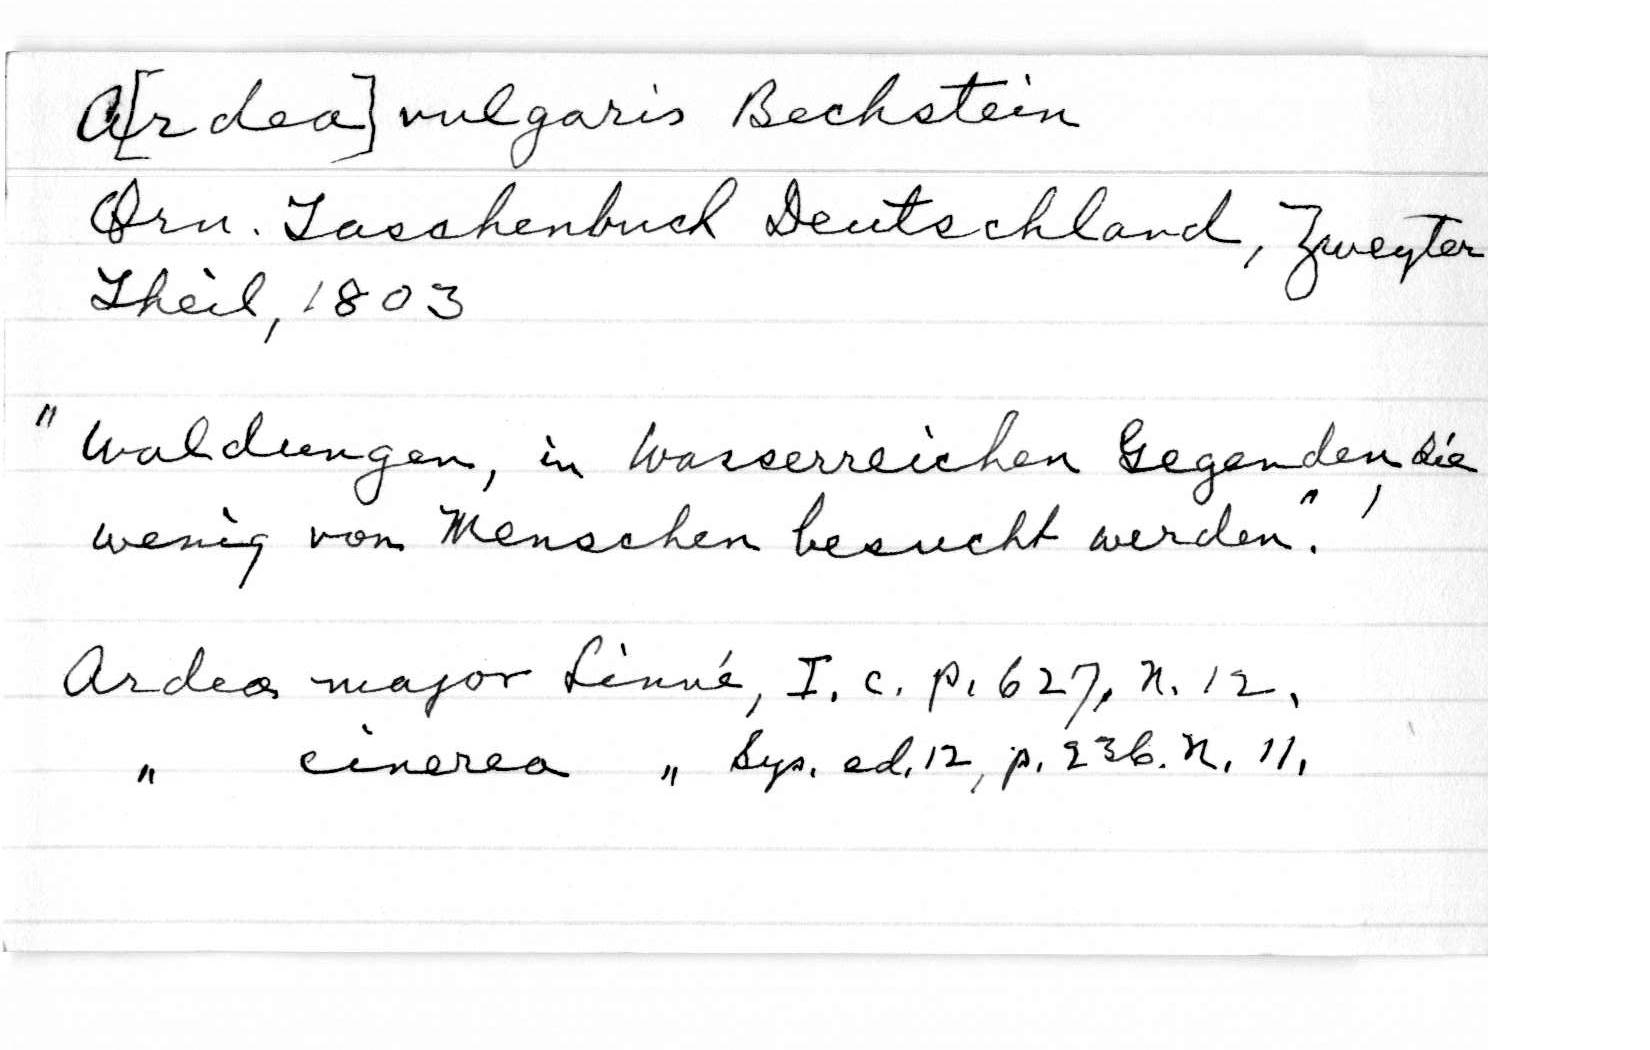 A[rdea] vulgaris Bechstein
Orn. Taschenbuch Deutschland, Zweyter
Theil, 1803
"Waldungen, in wasserreichen Gegenden, die
wenig von Menschen besucht werden".
Ardea major Linné, I. c. p. 627, n. 12.
" cinerea " Sys. ed. 12, p. 236. n. 11.